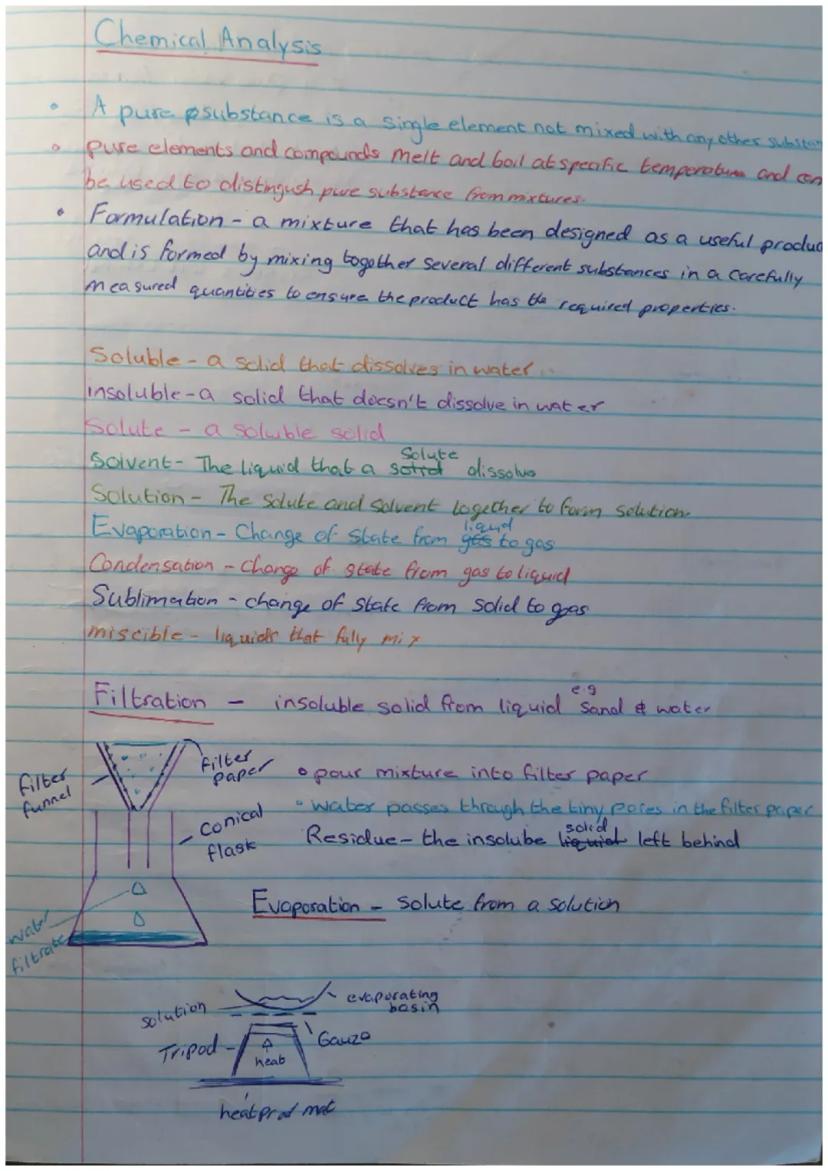 Chemical Analysis
• A pure substance is a single element not mixed with any other substan
• pure elements and compounds melt and boil at specific temperature and can
be used to distingush pure substance from mixtures.
• Formulation - a mixture that has been designed as a useful produc
and is formed by mixing together several different substances in a carefully
measured quantities to ensure the product has the required properties.
Soluble - a solid that dissolves in water.
insoluble - a solid that doesn't dissolve in water
Solute - a soluble solid
Solvent - The liquid that a solute dissolve
Solution - The solute and solvent together to form solution.
Evaporation - Change of state from liquid to gas
Condensation - change of state from gas to liquid
Sublimation - change of state from solid to gas
miscible - liquids that fully mix
Filtration - insoluble solid from liquid e.g sand & water
filter funnel
filter paper
• pour mixture into filter paper
• water passes through the tiny pores in the filter paper
conical flask
Residue - the insolube solid left behind
Evaporation - solute from a solution
water
filtrate
solution
evaporating basin
Tripod
Gauze
heat
heat proof mat